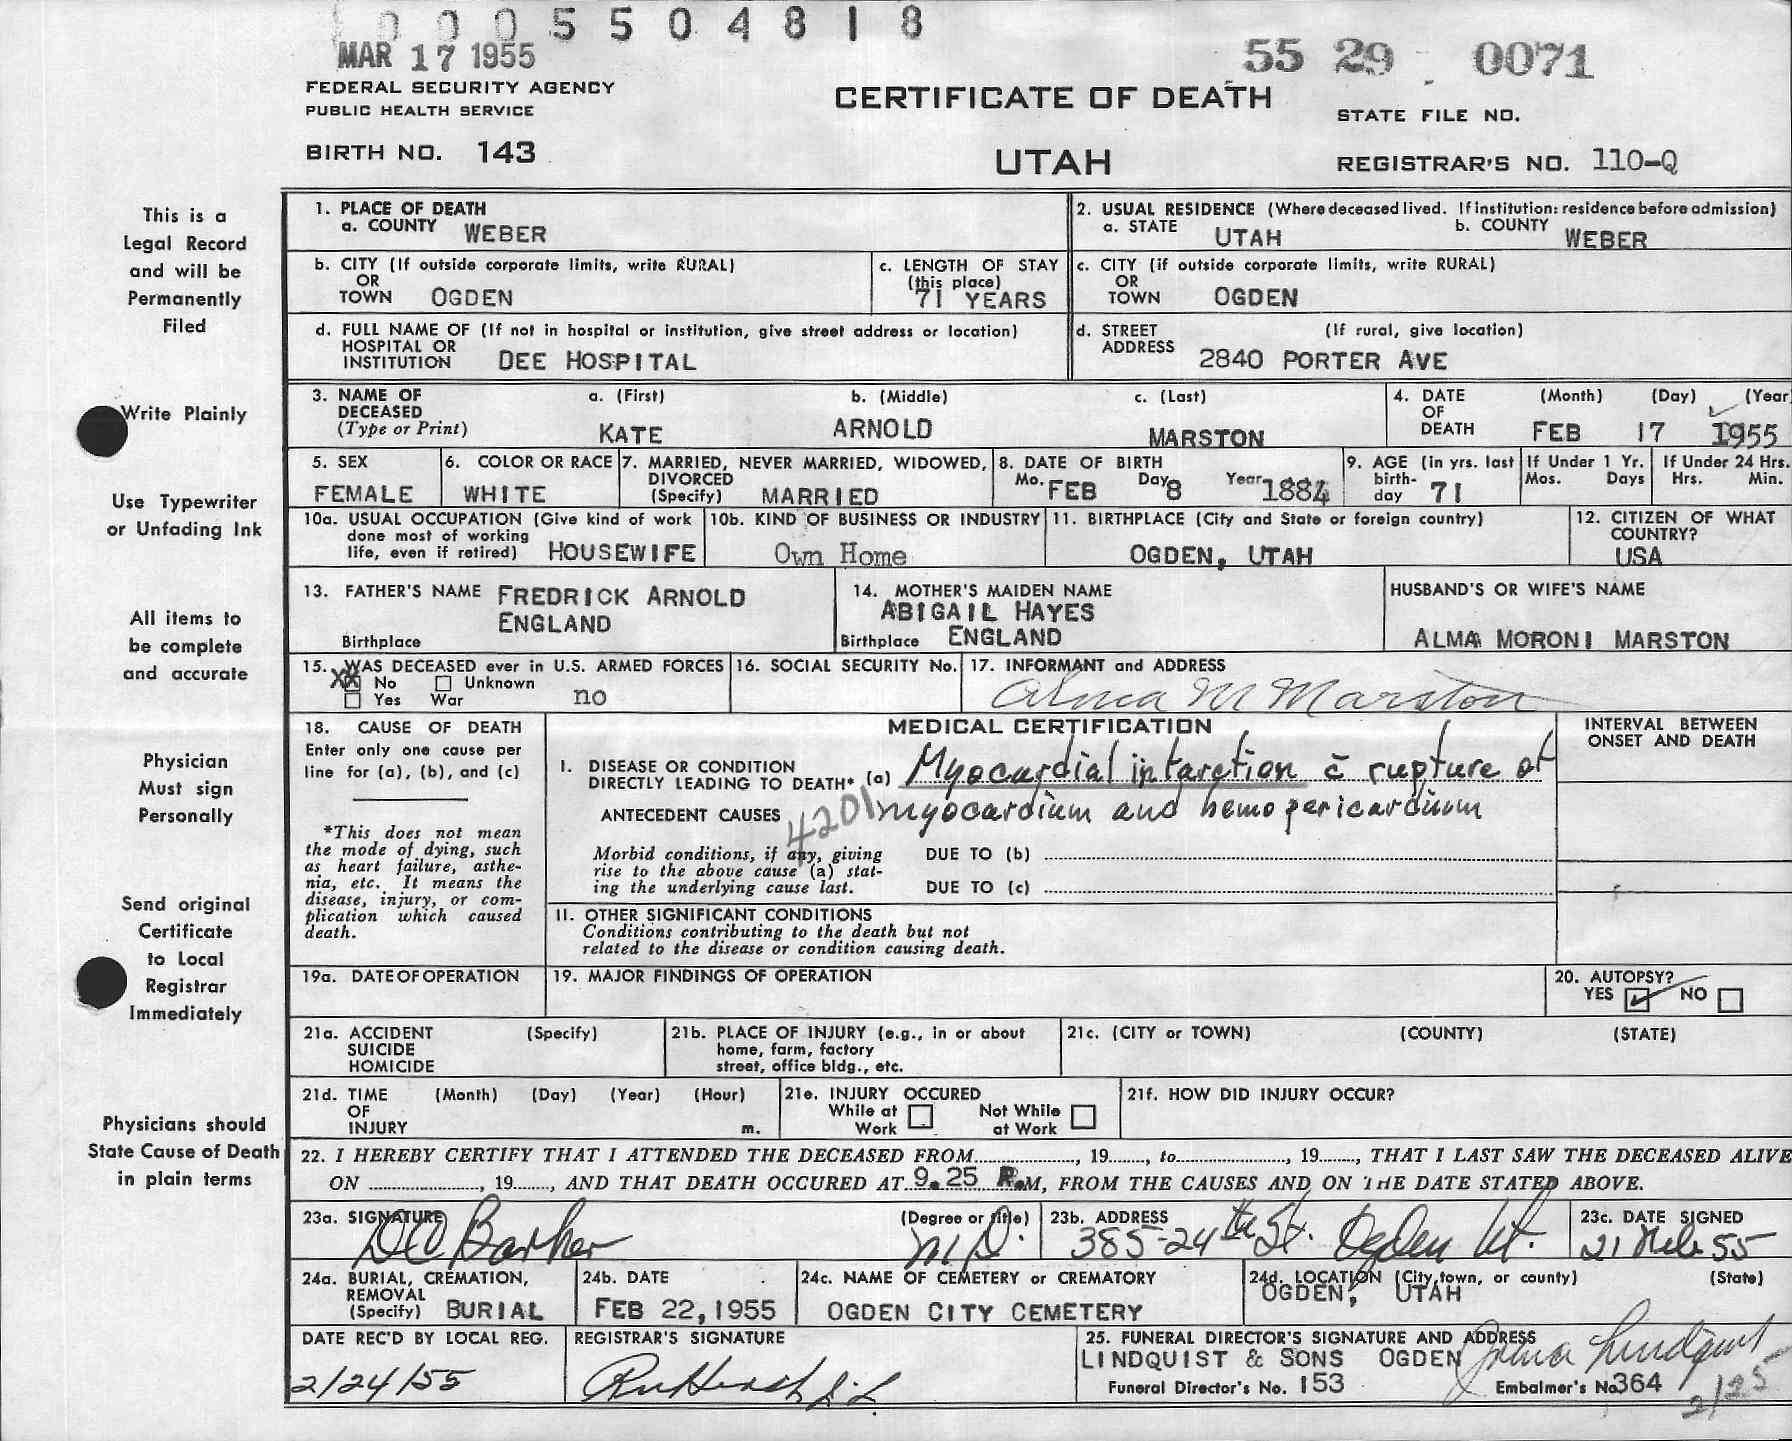 0 0 0 5 5 0 4 8 1 8
MAR 17 1955
55 29 0071
FEDERAL SECURITY AGENCY
PUBLIC HEALTH SERVICE
CERTIFICATE OF DEATH
STATE FILE NO.
BIRTH NO. 143
UTAH
REGISTRAR'S NO. 110-Q
This is a
Legal Record
and will be
Permanently
Filed
Write Plainly
Use Typewriter
or Unfading Ink
All items to
be complete
and accurate
Physician
Must sign
Personally
Send original
Certificate
to Local
Registrar
Immediately
Physicians should
State Cause of Death
in plain terms
1. PLACE OF DEATH
a. COUNTY WEBER
2. USUAL RESIDENCE (Where deceased lived. If institution: residence before admission)
a. STATE UTAH b. COUNTY WEBER
b. CITY (If outside corporate limits, write RURAL)
OR
TOWN OGDEN
c. LENGTH OF STAY
(this place)
71 YEARS
c. CITY (if outside corporate limits, write RURAL)
OR
TOWN OGDEN
d. FULL NAME OF (If not in hospital or institution, give street address or location)
HOSPITAL OR
INSTITUTION DEE HOSPITAL
d. STREET (If rural, give location)
ADDRESS 2840 PORTER AVE
3. NAME OF a. (First) b. (Middle) c. (Last)
DECEASED
(Type or Print) KATE ARNOLD MARSTON
4. DATE (Month) (Day) (Year)
OF
DEATH FEB 17 1955
5. SEX
FEMALE
6. COLOR OR RACE
WHITE
7. MARRIED, NEVER MARRIED, WIDOWED,
DIVORCED
(Specify) MARRIED
8. DATE OF BIRTH
Mo. FEB Day 8 Year 1884
9. AGE (in yrs. last
birth-
day 71
If Under 1 Yr.
Mos. Days
If Under 24 Hrs.
Hrs. Min.
10a. USUAL OCCUPATION (Give kind of work
done most of working
life, even if retired) HOUSEWIFE
10b. KIND OF BUSINESS OR INDUSTRY
Own Home
11. BIRTHPLACE (City and State or foreign country)
OGDEN, UTAH
12. CITIZEN OF WHAT
COUNTRY?
USA
13. FATHER'S NAME FREDRICK ARNOLD
ENGLAND
Birthplace
14. MOTHER'S MAIDEN NAME
ABIGAIL HAYES
Birthplace ENGLAND
HUSBAND'S OR WIFE'S NAME
ALMA MORONI MARSTON
15. WAS DECEASED ever in U.S. ARMED FORCES
XX No Unknown
Yes War no
16. SOCIAL SECURITY No.
17. INFORMANT and ADDRESS
Alma M Marston
18. CAUSE OF DEATH
Enter only one cause per
line for (a), (b), and (c)
*This does not mean
the mode of dying, such
as heart failure, asthe-
nia, etc. It means the
disease, injury, or com-
plication which caused
death.
MEDICAL CERTIFICATION
I. DISEASE OR CONDITION
DIRECTLY LEADING TO DEATH* (a) Myocardial infarction c̄ rupture of
ANTECEDENT CAUSES 4201 myocardium and hemopericardium
Morbid conditions, if any, giving
rise to the above cause (a) stat-
ing the underlying cause last.
DUE TO (b)
DUE TO (c)
II. OTHER SIGNIFICANT CONDITIONS
Conditions contributing to the death but not
related to the disease or condition causing death.
INTERVAL BETWEEN
ONSET AND DEATH
19a. DATE OF OPERATION
19. MAJOR FINDINGS OF OPERATION
20. AUTOPSY?
YES NO
21a. ACCIDENT (Specify)
SUICIDE
HOMICIDE
21b. PLACE OF INJURY (e.g., in or about
home, farm, factory
street, office bldg., etc.
21c. (CITY or TOWN) (COUNTY) (STATE)
21d. TIME (Month) (Day) (Year) (Hour)
OF
INJURY m.
21e. INJURY OCCURED
While at Not While
Work at Work
21f. HOW DID INJURY OCCUR?
22. I HEREBY CERTIFY THAT I ATTENDED THE DECEASED FROM..............., 19......, to..............., 19......, THAT I LAST SAW THE DECEASED ALIVE
ON ..............., 19......, AND THAT DEATH OCCURED AT 9.25 P.M, FROM THE CAUSES AND ON THE DATE STATED ABOVE.
23a. SIGNATURE (Degree or title)
Barker M.D.
23b. ADDRESS
385-24th St. Ogden Ut.
23c. DATE SIGNED
21 Feb 55
24a. BURIAL, CREMATION,
REMOVAL
(Specify) BURIAL
24b. DATE
FEB 22, 1955
24c. NAME OF CEMETERY or CREMATORY
OGDEN CITY CEMETERY
24d. LOCATION (City, town, or county) (State)
OGDEN, UTAH
DATE REC'D BY LOCAL REG.
2/24/55
REGISTRAR'S SIGNATURE
25. FUNERAL DIRECTOR'S SIGNATURE AND ADDRESS
LINDQUIST & SONS OGDEN Lindquist
Funeral Director's No. 153 Embalmer's No. 364
2/25